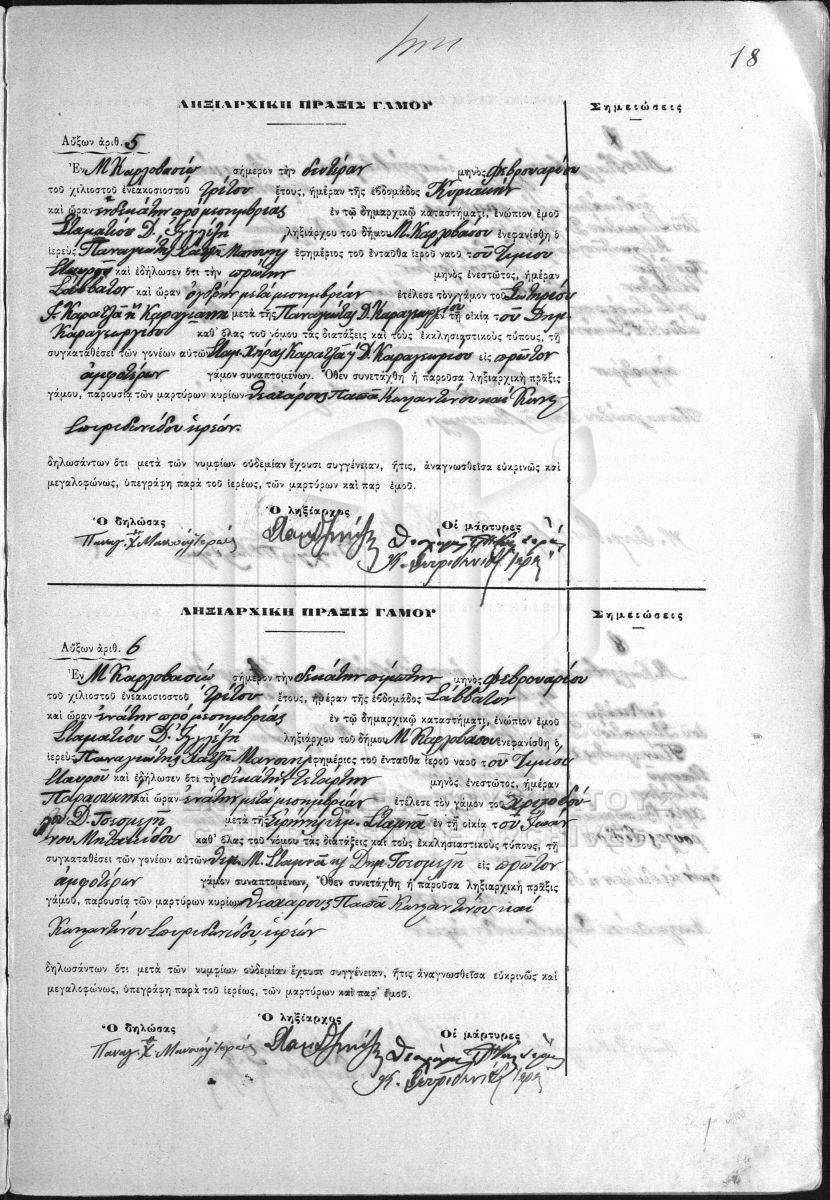 18
ΛΗΞΙΑΡΧΙΚΗ ΠΡΑΞΙΣ ΓΑΜΟΥ
Σημειώσεις
Αὔξων ἀριθ. 5
Ἐν Μ Καρλοβασίῳ σήμερον τὴν δευτέραν μηνὸς Φεβρουαρίου
τοῦ χιλιοστοῦ ἐνεακοσιοστοῦ τρίτου ἔτους, ἡμέραν τῆς ἑβδομάδος Κυριακὴν
καὶ ὥραν ἑνδεκάτην πρὸ μεσημβρίας ἐν τῷ δημαρχικῷ καταστήματι, ἐνώπιον ἐμοῦ
Σταματίου Δ. ληξιάρχου τοῦ δήμου Μ. Καρλοβασίου ἐνεφανίσθη ὁ
ἱερεὺς Παναγιώτης Χατζῆ Μανουὴλ ἐφημέριος τοῦ ἐνταῦθα ἱεροῦ ναοῦ τοῦ Τιμίου
Σταυροῦ καὶ ἐδήλωσεν ὅτι τὴν πρώτην μηνὸς ἐνεστῶτος, ἡμέραν
Σάββατον καὶ ὥραν ὀγδόην μετὰ μεσημβρίαν ἐτέλεσε τὸν γάμον τοῦ Σωτηρίου
Καρατζᾶ ἢ μετὰ τῆς Παναγιώτας Δ. Καραγεωργίου ἐν τῇ οἰκίᾳ τοῦ Δημ.
Καραγεωργίου καθ᾽ ὅλας τοῦ νόμου τὰς διατάξεις καὶ τοὺς ἐκκλησιαστικοὺς τύπους, τῇ
συγκαταθέσει τῶν γονέων αὐτῶν Σταμ. Χήρας Καρατζᾶ Δ. Καραγεωργίου εἰς πρῶτον
ἀμφοτέρων γάμον συναπτομένων. Ὅθεν συνετάχθη ἡ παροῦσα ληξιαρχικὴ πρᾶξις
γάμου, παρουσίᾳ τῶν μαρτύρων κυρίων Θεοχάρους Παπᾶ Κωνσταντίνου καὶ Κωνστ.
Σπυριδωνίδου ἱερέων.
δηλωσάντων ὅτι μετὰ τῶν νυμφίων οὐδεμίαν ἔχουσι συγγένειαν, ἥτις, ἀναγνωσθεῖσα εὐκρινῶς καὶ
μεγαλοφώνως, ὑπεγράφη παρὰ τοῦ ἱερέως, τῶν μαρτύρων καὶ παρ᾽ ἐμοῦ.
Ὁ δηλώσας
Ὁ ληξίαρχος
Οἱ μάρτυρες
ΛΗΞΙΑΡΧΙΚΗ ΠΡΑΞΙΣ ΓΑΜΟΥ
Σημειώσεις
Αὔξων ἀριθ. 6
Ἐν Μ Καρλοβασίῳ σήμερον τὴν δεκάτην πέμπτην μηνὸς Φεβρουαρίου
τοῦ χιλιοστοῦ ἐνεακοσιοστοῦ τρίτου ἔτους, ἡμέραν τῆς ἑβδομάδος Σάββατον
καὶ ὥραν ἐνάτην πρὸ μεσημβρίας ἐν τῷ δημαρχικῷ καταστήματι, ἐνώπιον ἐμοῦ
Σταματίου Δ. ληξιάρχου τοῦ δήμου Μ Καρλοβασίου ἐνεφανίσθη ὁ
ἱερεὺς Παναγιώτης Χατζῆ Μανουὴλ ἐφημέριος τοῦ ἐνταῦθα ἱεροῦ ναοῦ τοῦ Τιμίου
Σταυροῦ καὶ ἐδήλωσεν ὅτι τὴν δεκάτην τετάρτην μηνὸς ἐνεστῶτος, ἡμέραν
Παρασκευὴν καὶ ὥραν ἐνάτην μετὰ μεσημβρίαν ἐτέλεσε τὸν γάμον τοῦ Χριστοδού
λου Δ. Τσεσμελῆ μετὰ τῆς Εἰρήνης Δημ. Σταμνᾶ ἐν τῇ οἰκίᾳ τοῦ Ἰωάν
νου καθ᾽ ὅλας τοῦ νόμου τὰς διατάξεις καὶ τοὺς ἐκκλησιαστικοὺς τύπους, τῇ
συγκαταθέσει τῶν γονέων αὐτῶν Δημ. Μ. Σταμνᾶ κ Δημ. Τσεσμελῆ εἰς πρῶτον
ἀμφοτέρων γάμον συναπτομένων, Ὅθεν συνετάχθη ἡ παροῦσα ληξιαρχικὴ πρᾶξις
γάμου, παρουσίᾳ τῶν μαρτύρων κυρίων Θεοχάρους Παπᾶ Κωνσταντίνου καὶ
Κωνσταντίνου Σπυριδωνίδου, ἱερέων
δηλωσάντων ὅτι μετὰ τῶν νυμφίων οὐδεμίαν ἔχουσι συγγένειαν, ἥτις ἀναγνωσθεῖσα εὐκρινῶς καὶ
μεγαλοφώνως, ὑπεγράφη παρὰ τοῦ ἱερέως, τῶν μαρτύρων καὶ παρ᾽ ἐμοῦ.
Ὁ δηλώσας
Ὁ ληξίαρχος
Οἱ μάρτυρες